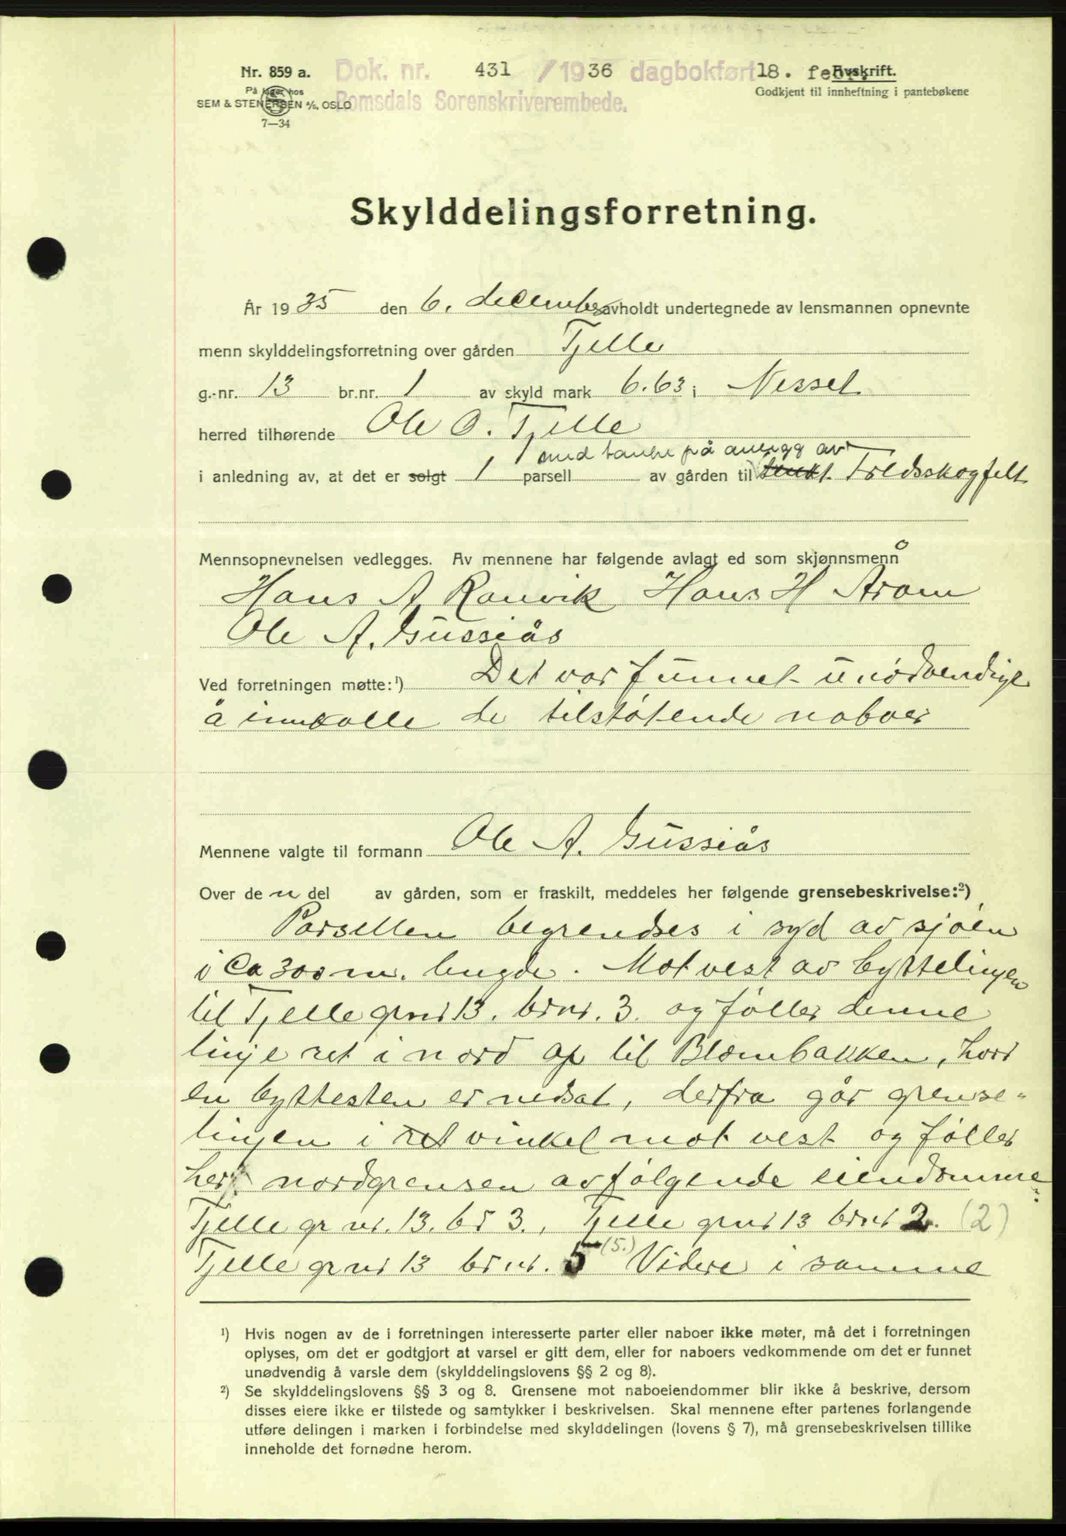 Nr. 859 a. Dok. nr. 431 /1936 dagbokført 18. febr. Avskrift.
På lager hos
SEM & STENERSEN A/S, OSLO Romsdals Sorenskriverembede. Godkjent til innheftning i pantebøkene
7—34
Skylddelingsforretning.
År 1935 den 6. december avholdt undertegnede av lensmannen opnevnte
menn skylddelingsforretning over gården Tjelle
g.-nr. 13 br.nr. 1 av skyld mark 6.63 i Nesset
herred tilhørende Ole O. Tjelle
med tanke på anlegg av
i anledning av, at det er solgt 1 parsell av gården til Fredsskogfelt
Mennsopnevnelsen vedlegges. Av mennene har følgende avlagt ed som skjønnsmenn
Hans A. Ranvik Hans H Aram
Ole A. Gussiås
Ved forretningen møtte:¹) Det var funnet unødvendige
å innkalle de tilstøtende naboer
Mennene valgte til formann Ole A. Gussiås
Over den del av gården, som er fraskilt, meddeles her følgende grensebeskrivelse:²)
Parsellen begrendses i syd av sjøen
i Ca 300 m. lengde. Mot vest av byttelinjen
til Tjelle grnr 13. brnr. 3. og føller denne
linje ret i nord op til Blombakken, hvor
en byttesten er nedsat, derfra går grense-
linjen i ret vinkel mot vest og føller
her nordgrensen av følgende eiendomme:
Tjelle gr nr. 13. br 3., Tjelle grnr 13 brnr 2. (2)
Tjelle grnr 13 brnr. 5 (5.) Videre i samme
¹) Hvis nogen av de i forretningen interesserte parter eller naboer ikke møter, må det i forretningen
oplyses, om det er godtgjort at varsel er gitt dem, eller for naboers vedkommende om det er funnet
unødvendig å varsle dem (skylddelingslovens §§ 2 og 8).
²) Se skylddelingslovens §§ 3 og 8. Grensene mot naboeiendommer blir ikke å beskrive, dersom
disses eiere ikke er tilstede og samtykker i beskrivelsen. Skal mennene efter partenes forlangende
utføre delingen i marken i forbindelse med skylddelingen (lovens § 7), må grensebeskrivelsen tillike
inneholde det fornødne herom.